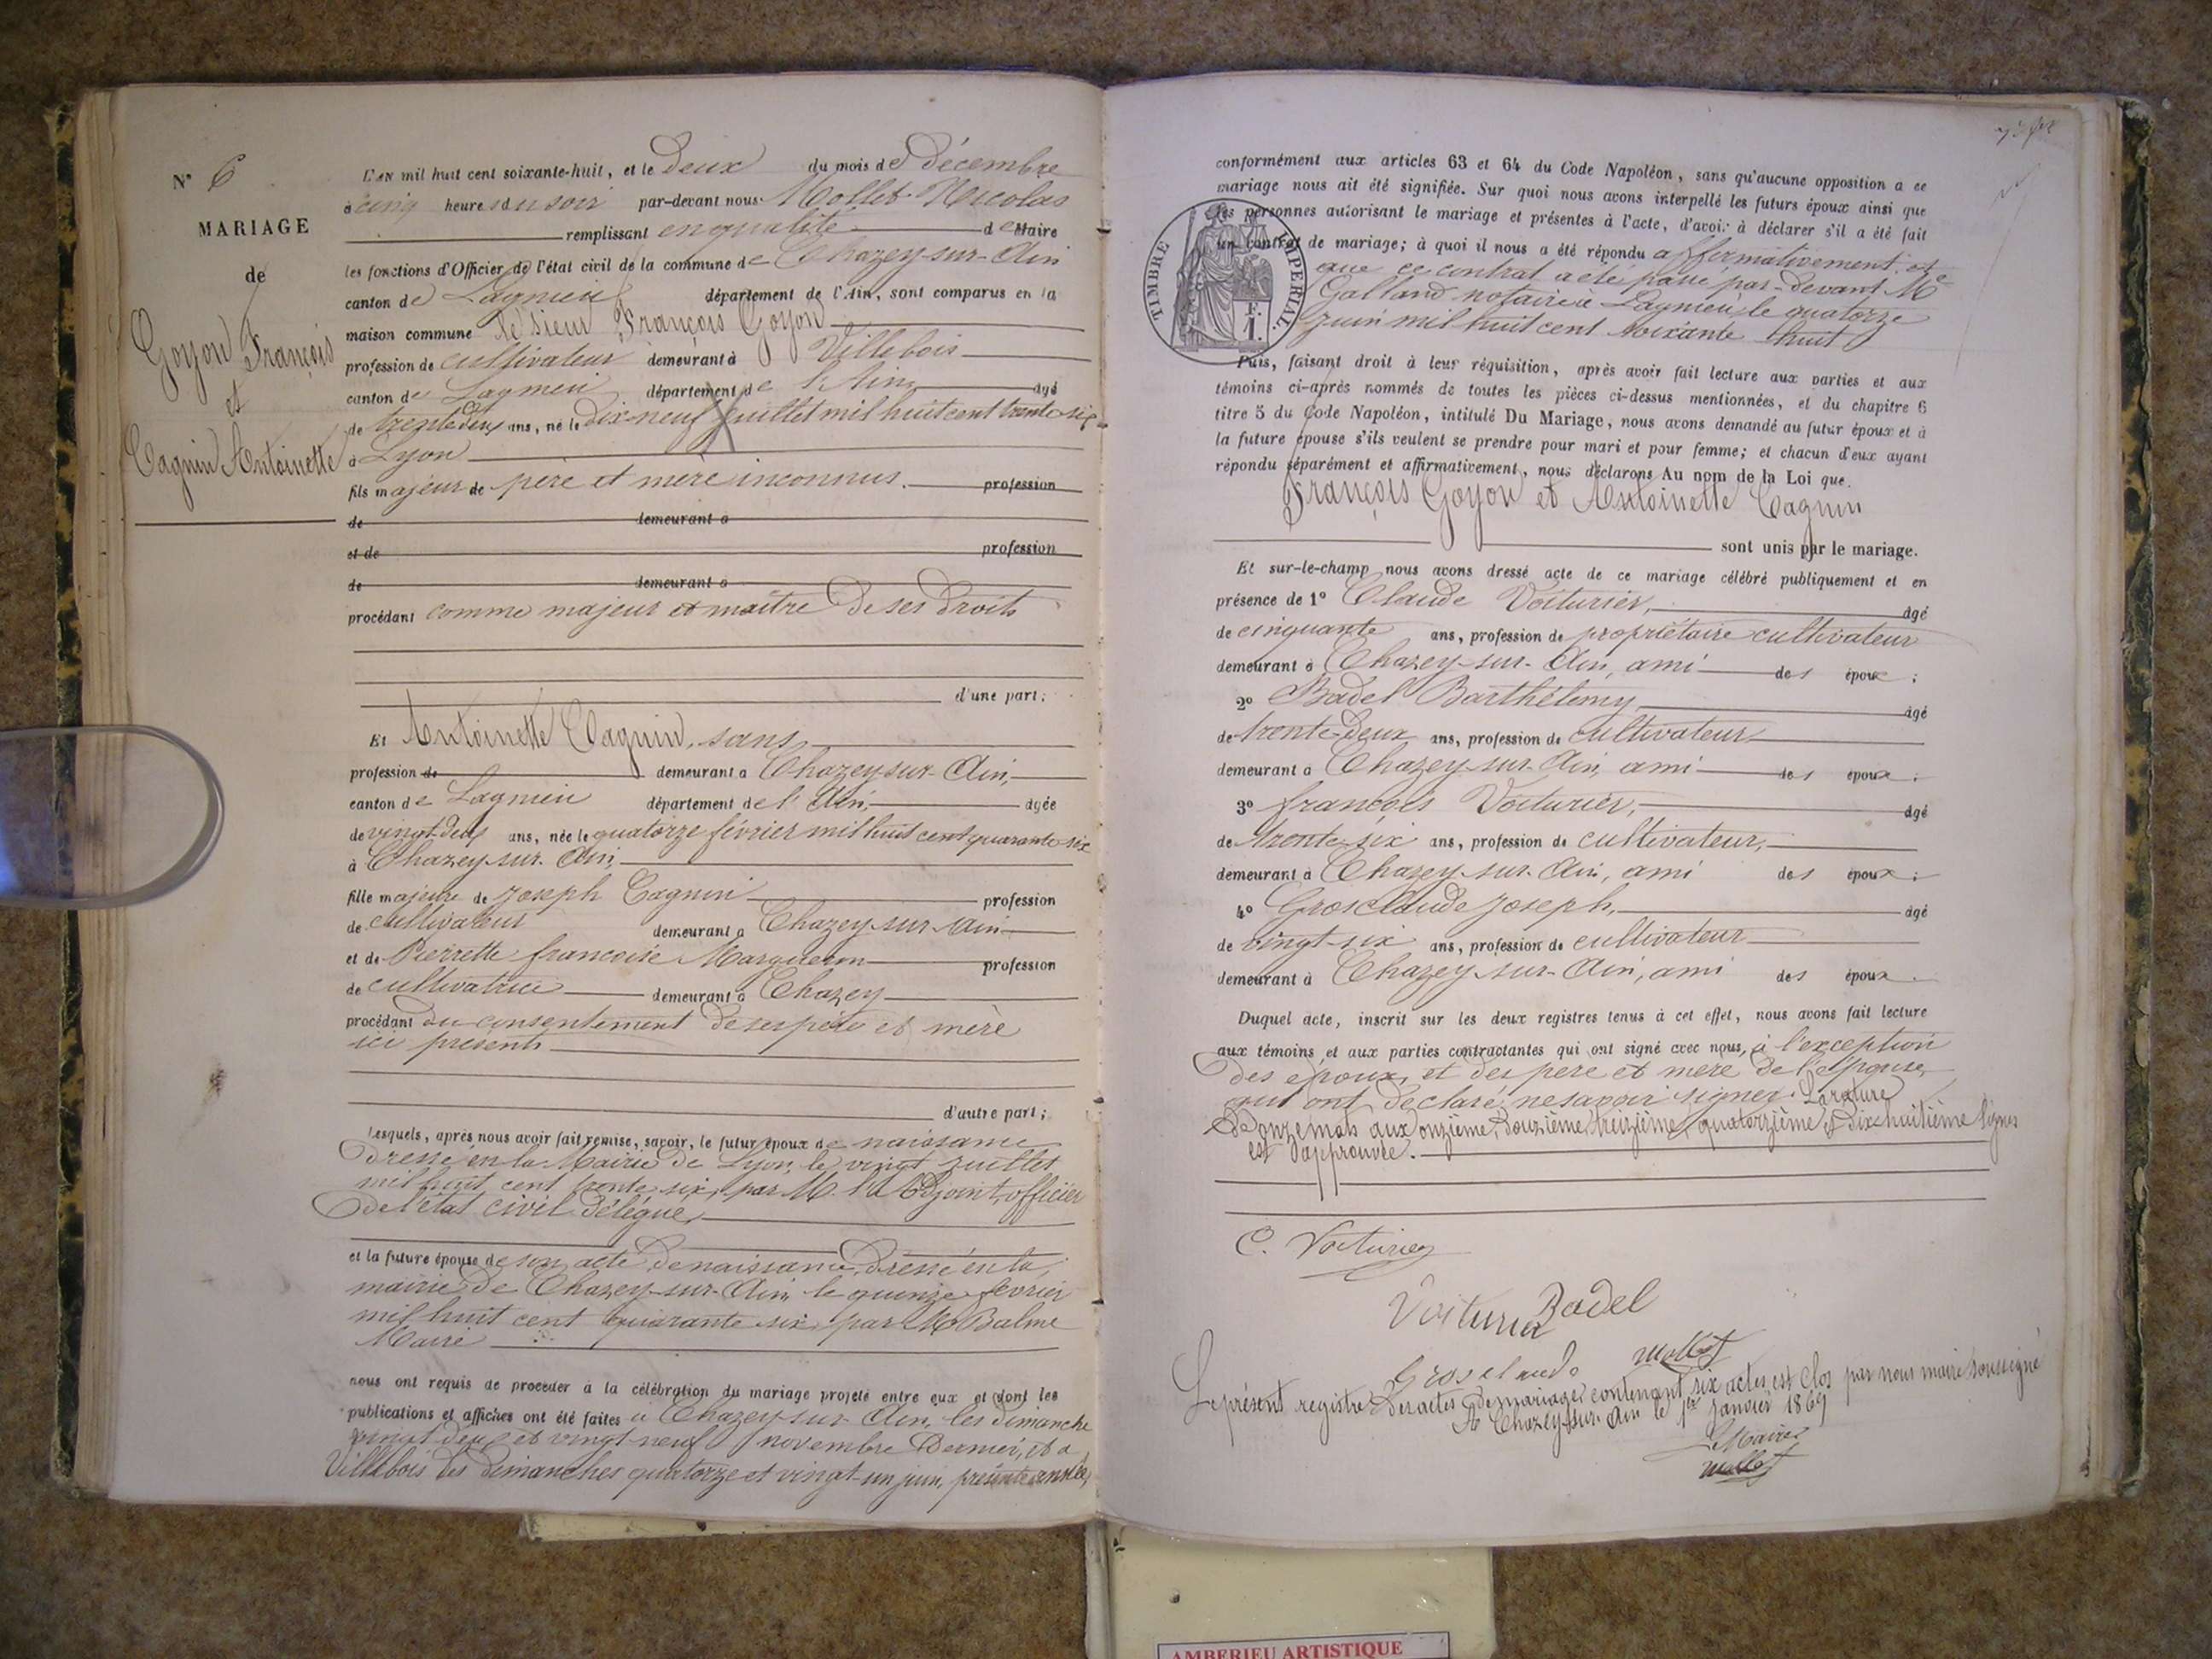 N° 6
MARIAGE
de
Goyon François
et
Cagnin Antoinette
L'an mil huit cent soixante-huit, et le deux du mois de décembre
à cinq heures du soir par-devant nous Mollet Nicolas
remplissant en qualité de Maire
les fonctions d'Officier de l'état civil de la commune de Chazey-sur-Ain
canton de Lagnieu département de l'Ain, sont comparus en la
maison commune le sieur François Goyon
profession de cultivateur demeurant à Villebois
canton de Lagnieu département de l'Ain, âgé
de trente deux ans, né le dix-neuf juillet mil huit cent trente-six
à Lyon
fils majeur de père et mère inconnus. profession
de demeurant à
et de profession
de demeurant à
procédant comme majeur et maître de ses droits
d'une part;
Et Antoinette Cagnin, sans
profession de demeurant à Chazey-sur-Ain,
canton de Lagnieu département de l'Ain, âgée
de vingt-deux ans, née le quatorze février mil huit cent quarante six
à Chazey-sur-Ain,
fille majeure de Joseph Cagnin profession
de cultivateur demeurant à Chazey-sur-Ain
et de Pierrette françoise Margueron profession
de cultivatrice demeurant à Chazey
procédant du consentement de ses père et mère
ici présents
d'autre part;
Lesquels, après nous avoir fait remise, savoir, le futur époux de naissance
dressé en la Mairie de Lyon, le vingt juillet
mil huit cent trente six, par M. l'Adjoint, officier
de l'état civil délégué,
et la future épouse de son acte de naissance, dressé en la
mairie de Chazey-sur-Ain le quinze fevrier
mil huit cent quarante six, par M. Balme
Maire
nous ont requis de procéder à la célébration du mariage projeté entre eux et dont les
publications et affiches ont été faites à Chazey-sur-Ain, les dimanche
vingt deux et vingt neuf novembre dernier, et à
Villebois les dimanches quatorze et vingt-un juin, présente année,
conformément aux articles 63 et 64 du Code Napoléon, sans qu'aucune opposition à ce
mariage nous ait été signifiée. Sur quoi nous avons interpellé les futurs époux ainsi que
les personnes autorisant le mariage et présentes à l'acte, d'avoir à déclarer s'il a été fait
un contrat de mariage; à quoi il nous a été répondu affirmativement, et
que ce contrat a été passé par-devant Me
Galland notaire à Lagnieu, le quatorze
juin mil huit cent soixante huit
TIMBRE IMPERIAL.
1 F.
Puis, faisant droit à leur réquisition, après avoir fait lecture aux parties et aux
témoins ci-après nommés de toutes les pièces ci-dessus mentionnées, et du chapitre 6
titre 5 du Code Napoléon, intitulé Du Mariage, nous avons demandé au futur époux et à
la future épouse s'ils veulent se prendre pour mari et pour femme; et chacun d'eux ayant
répondu séparément et affirmativement, nous déclarons Au nom de la Loi que
François Goyon et Antoinette Cagnin
sont unis par le mariage.
Et sur-le-champ nous avons dressé acte de ce mariage célébré publiquement et en
présence de 1° Claude Voiturier, âgé
de cinquante ans, profession de propriétaire cultivateur
demeurant à Chazey-sur-Ain, ami des époux;
2° Badel Barthélemy âgé
de trente-deux ans, profession de cultivateur
demeurant à Chazey-sur-Ain, ami des époux;
3° françois Voiturier, âgé
de trente-six ans, profession de cultivateur,
demeurant à Chazey-sur-Ain, ami des époux;
4° Grosclaude Joseph, âgé
de vingt-six ans, profession de cultivateur
demeurant à Chazey-sur-Ain, ami des époux.
Duquel acte, inscrit sur les deux registres tenus à cet effet, nous avons fait lecture
aux témoins et aux parties contractantes qui ont signé avec nous, à l'exception
des époux, et des père et mère de l'épouse,
qui ont déclaré ne savoir signer. La rature
de onze mots aux onzième, douzième, treizième, quatorzième et dix-huitième lignes
est approuvée.
C. Voiturier
Voiturier Badel
Grosclaude Mollet
Le présent registre des actes de mariage contenant six actes est clos par nous maire soussigné
A Chazey-sur-Ain le 1er janvier 1869
Le Maire
Mollet
AMBERIEU ARTISTIQUE